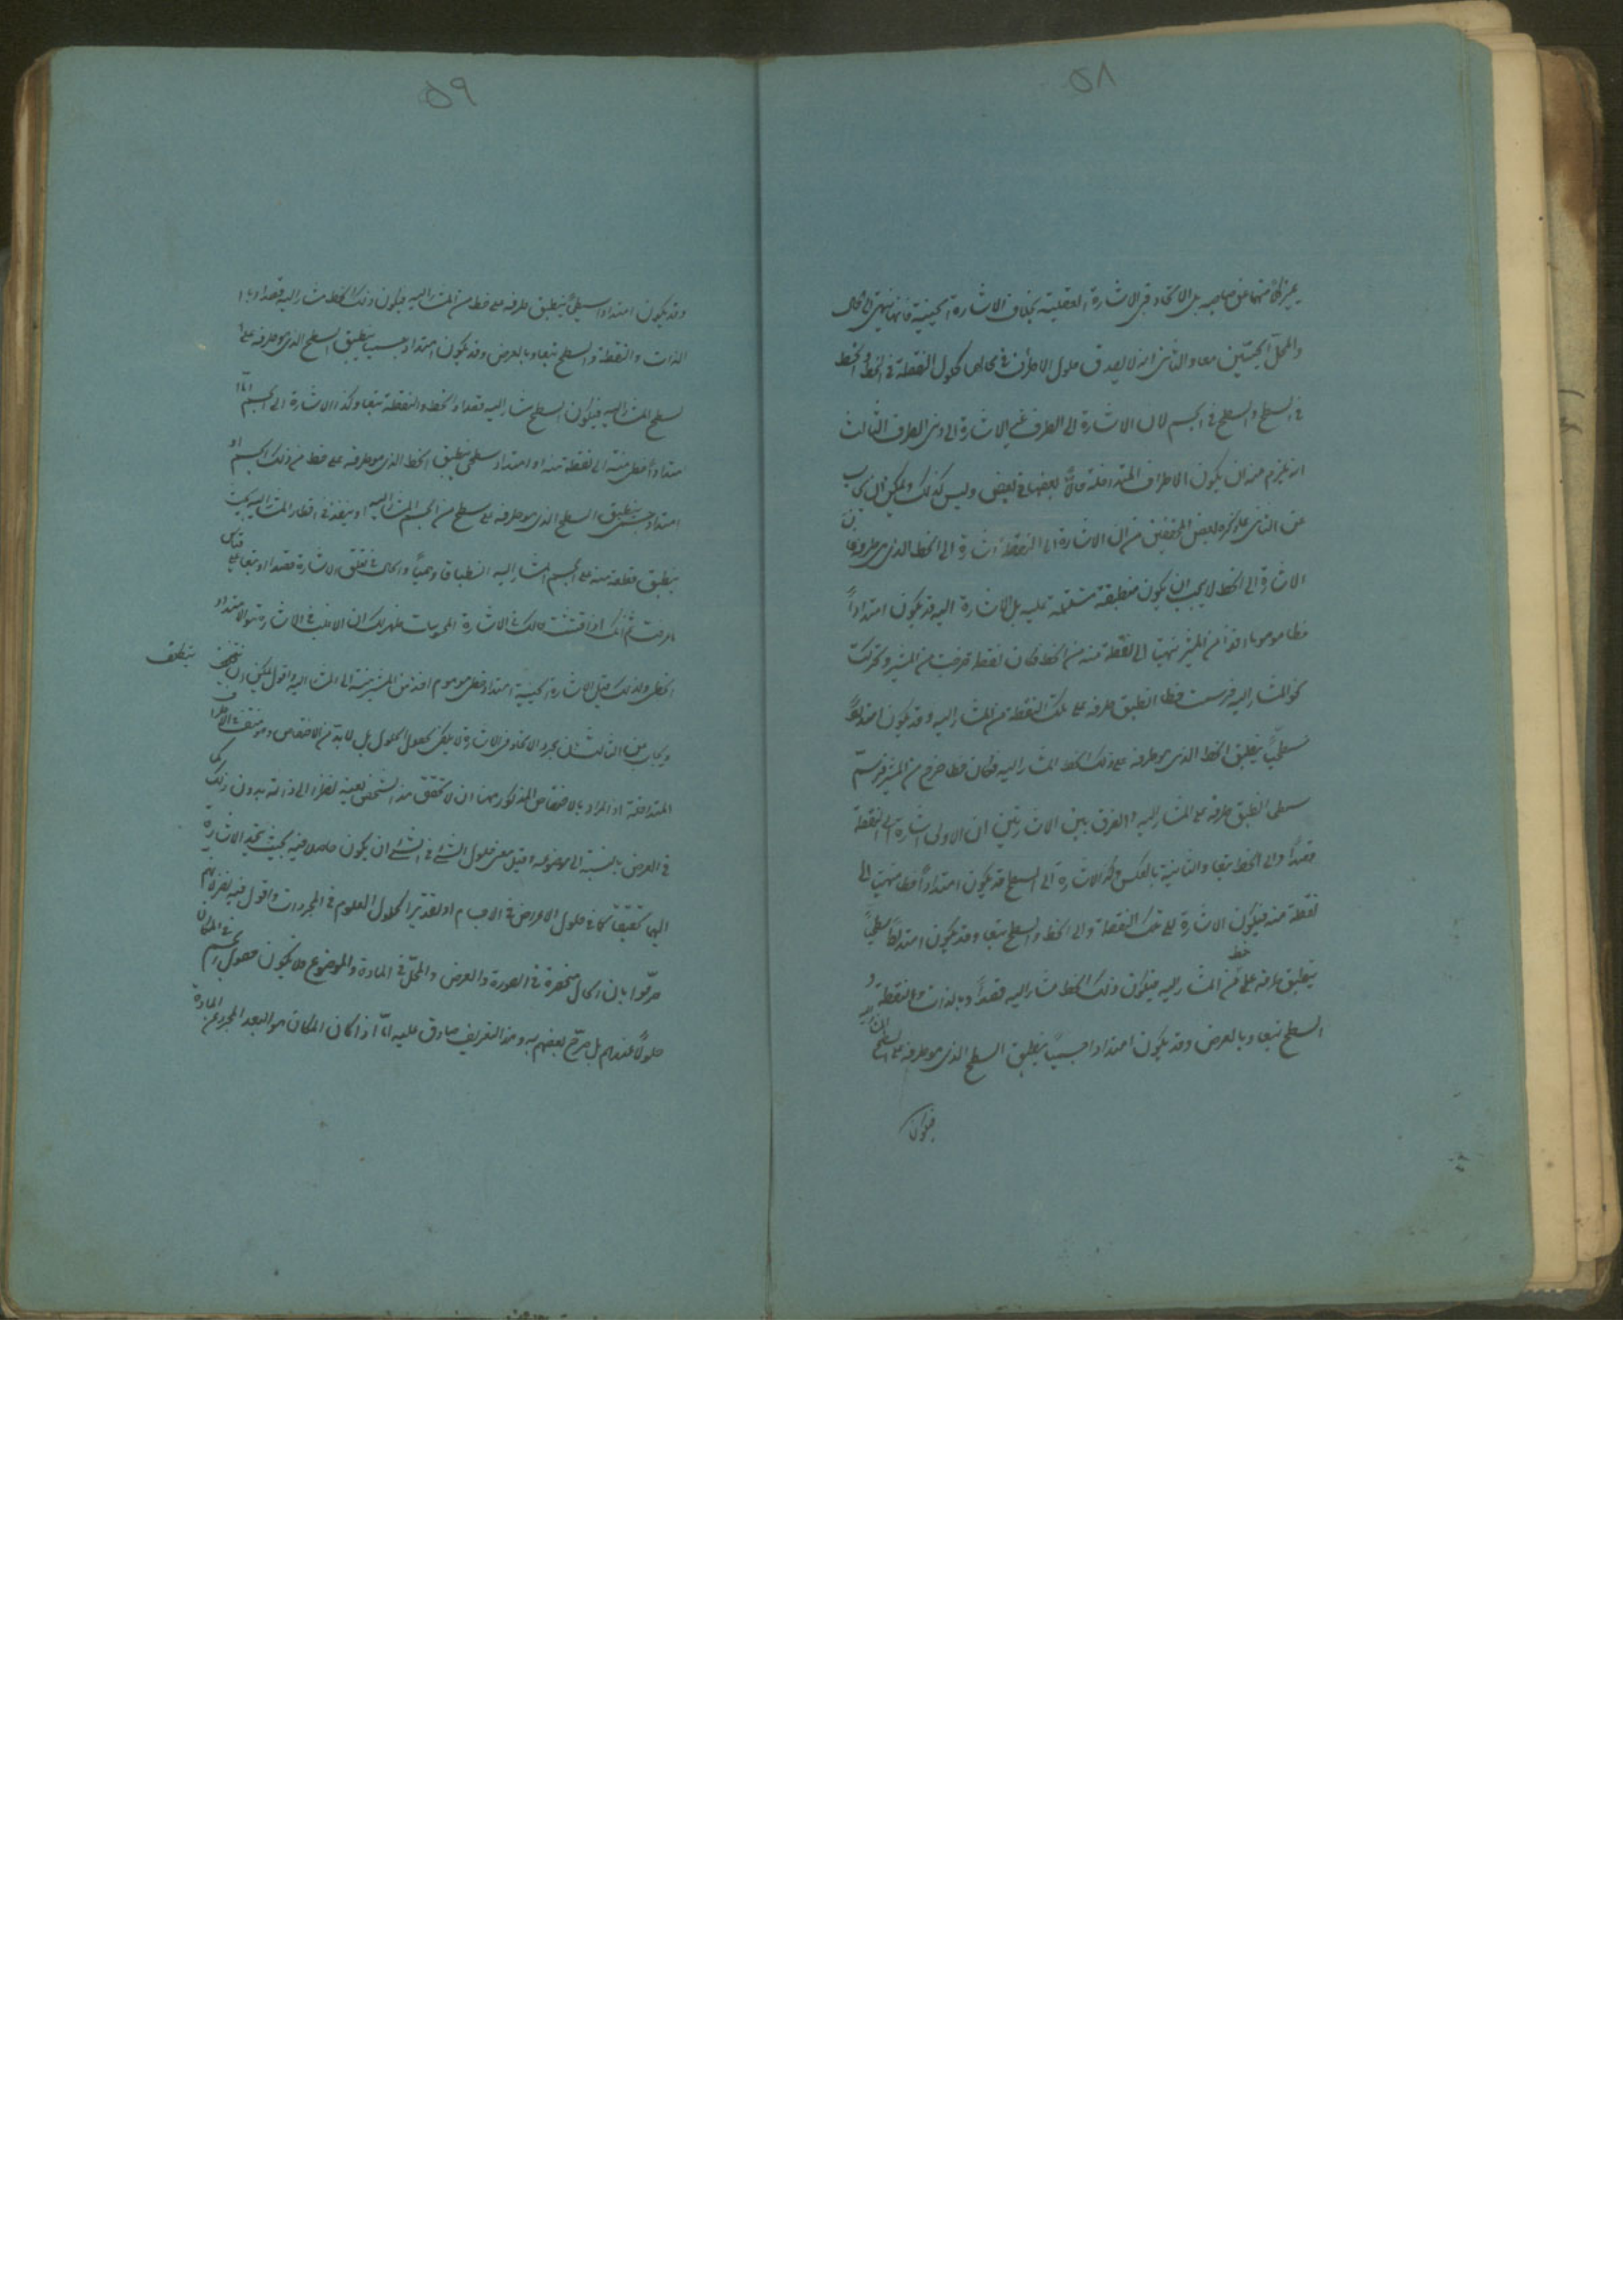 ٥٨
يميز كلا منهما عن صاحبه بل الاتحاد في الاشارة العقلية بخلاف الاشارة الحسية فانها تنتهي الى الحال
والمحل الحسيتين معا والثاني انه لا يصدق على حلول الاطراف في محالها كحلول النقطة في الخط والخط
في السطح والسطح في الجسم لان الاشارة الى الطرف غير الاشارة الى ذي الطرف الثالث
انه يلزم منه ان يكون الاطراف المتداخلة حالا بعضها في بعض وليس كذلك ويمكن ان يجاب
عن الثاني بما ذكره بعض المحققين من ان الاشارة الى النقطة اشارة الى الخط الذي هي طرفه فان
الاشارة الى الخط لا يجب ان يكون منطبقة مشتملة عليه بل الاشارة اليه قد يكون امتدادا
خطيا موهوما اخذا من المشير منتهيا الى نقطة منه من الخط فكان نقطة خرجت من المشير وتحركت
نحو المشار اليه فرسمت خطا انطبق طرفه على تلك النقطة من المشار اليه وقد يكون امتدادا
سطحيا ينطبق الخط الذي هو طرفه على ذلك الخط المشار اليه فكان خطا خرج من المشير فرسم
سطحا انطبق طرفه على المشار اليه والفرق بين الاشارتين ان الاولى اشارة الى النقطة
قصدا والى الخط تبعا والثانية بالعكس وكذا الاشارة الى السطح قد يكون امتدادا خطيا منتهيا الى
نقطة منه فيكون الاشارة الى تلك النقطة والى الخط والسطح تبعا وقد يكون امتدادا سطحيا
ينطبق طرفه على خط من المشار اليه فيكون ذلك الخط مشارا اليه قصدا وبالذات والنقطة و
السطح تبعا وبالعرض وقد يكون امتدادا جسميا ينطبق السطح الذي هو طرفه على السطح المشار اليه
فيكون
٥٩
وقد يكون امتدادا سطحيا ينطبق طرفه على خط من المشار اليه فيكون ذلك الخط مشارا اليه قصدا وبا
الذات والنقطة والسطح تبعا وبالعرض وقد يكون امتدادا جسميا ينطبق السطح الذي هو طرفه على ا
لسطح المشار اليه فيكون السطح مشارا اليه قصدا والخط والنقطة تبعا وكذا الاشارة الى الجسم اما
امتدادا خطي منته الى نقطة منه او امتداد سطحي ينطبق الخط الذي هو طرفه على خط من ذلك الجسم او
امتداد جسمي ينطبق السطح الذي هو طرفه على سطح من الجسم المشار اليه او ينفذ في اقطار المشار اليه بحيث
ينطبق قطعة منه على الجسم المشار اليه انطباقا وهميا والحال في تعلق الاشارة قصدا وتبعا على قياس
ما عرفت ثم انك اذا فتشت حالك في الاشارة الى المحسوسات ظهر لك ان الاغلب في الاشارة هو الامتداد
الخطي ولذلك قيل الاشارة الحسية امتداد خطي موهوم اخذ من المشير منته الى المشار اليه واقول يمكن ان
ويجاب عن الثالث بان مجرد الاتحاد في الاشارة لا يكفي لحصول الحلول بل لا بد من الاختصاص وهو منتف في الاطراف
المتداخلة اذ المراد بالاختصاص المذكور ههنا ان لا يتحقق هذا الشخص بعينه نظرا الى ذاته بدون ذلك كما
في العرض بالنسبة الى موضوعه وقيل معنى حلول الشيء في الشيء ان يكون حاصلا فيه بحيث يتحد الاشارة
اليهما تحقيقا كما في حلول الاعراض في الاجسام او تقديرا كحلول العلوم في المجردات واقول فيه نظر لانهم
صرحوا بان الحال منحصرة في الصورة والعرض والمحل في المادة والموضوع فلا يكون حصول الجسم في المكان
حلولا عندهم بل صرح بعضهم به وهذا التعريف صادق عليه اما اذا كان المكان هو البعد المجرد عن المادة